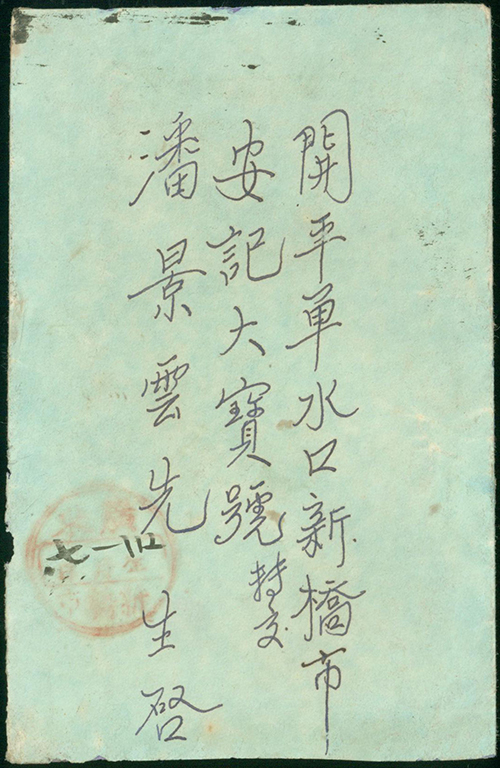 開平單水口新橋市
安記大寶號轉交
潘景雲先生啓